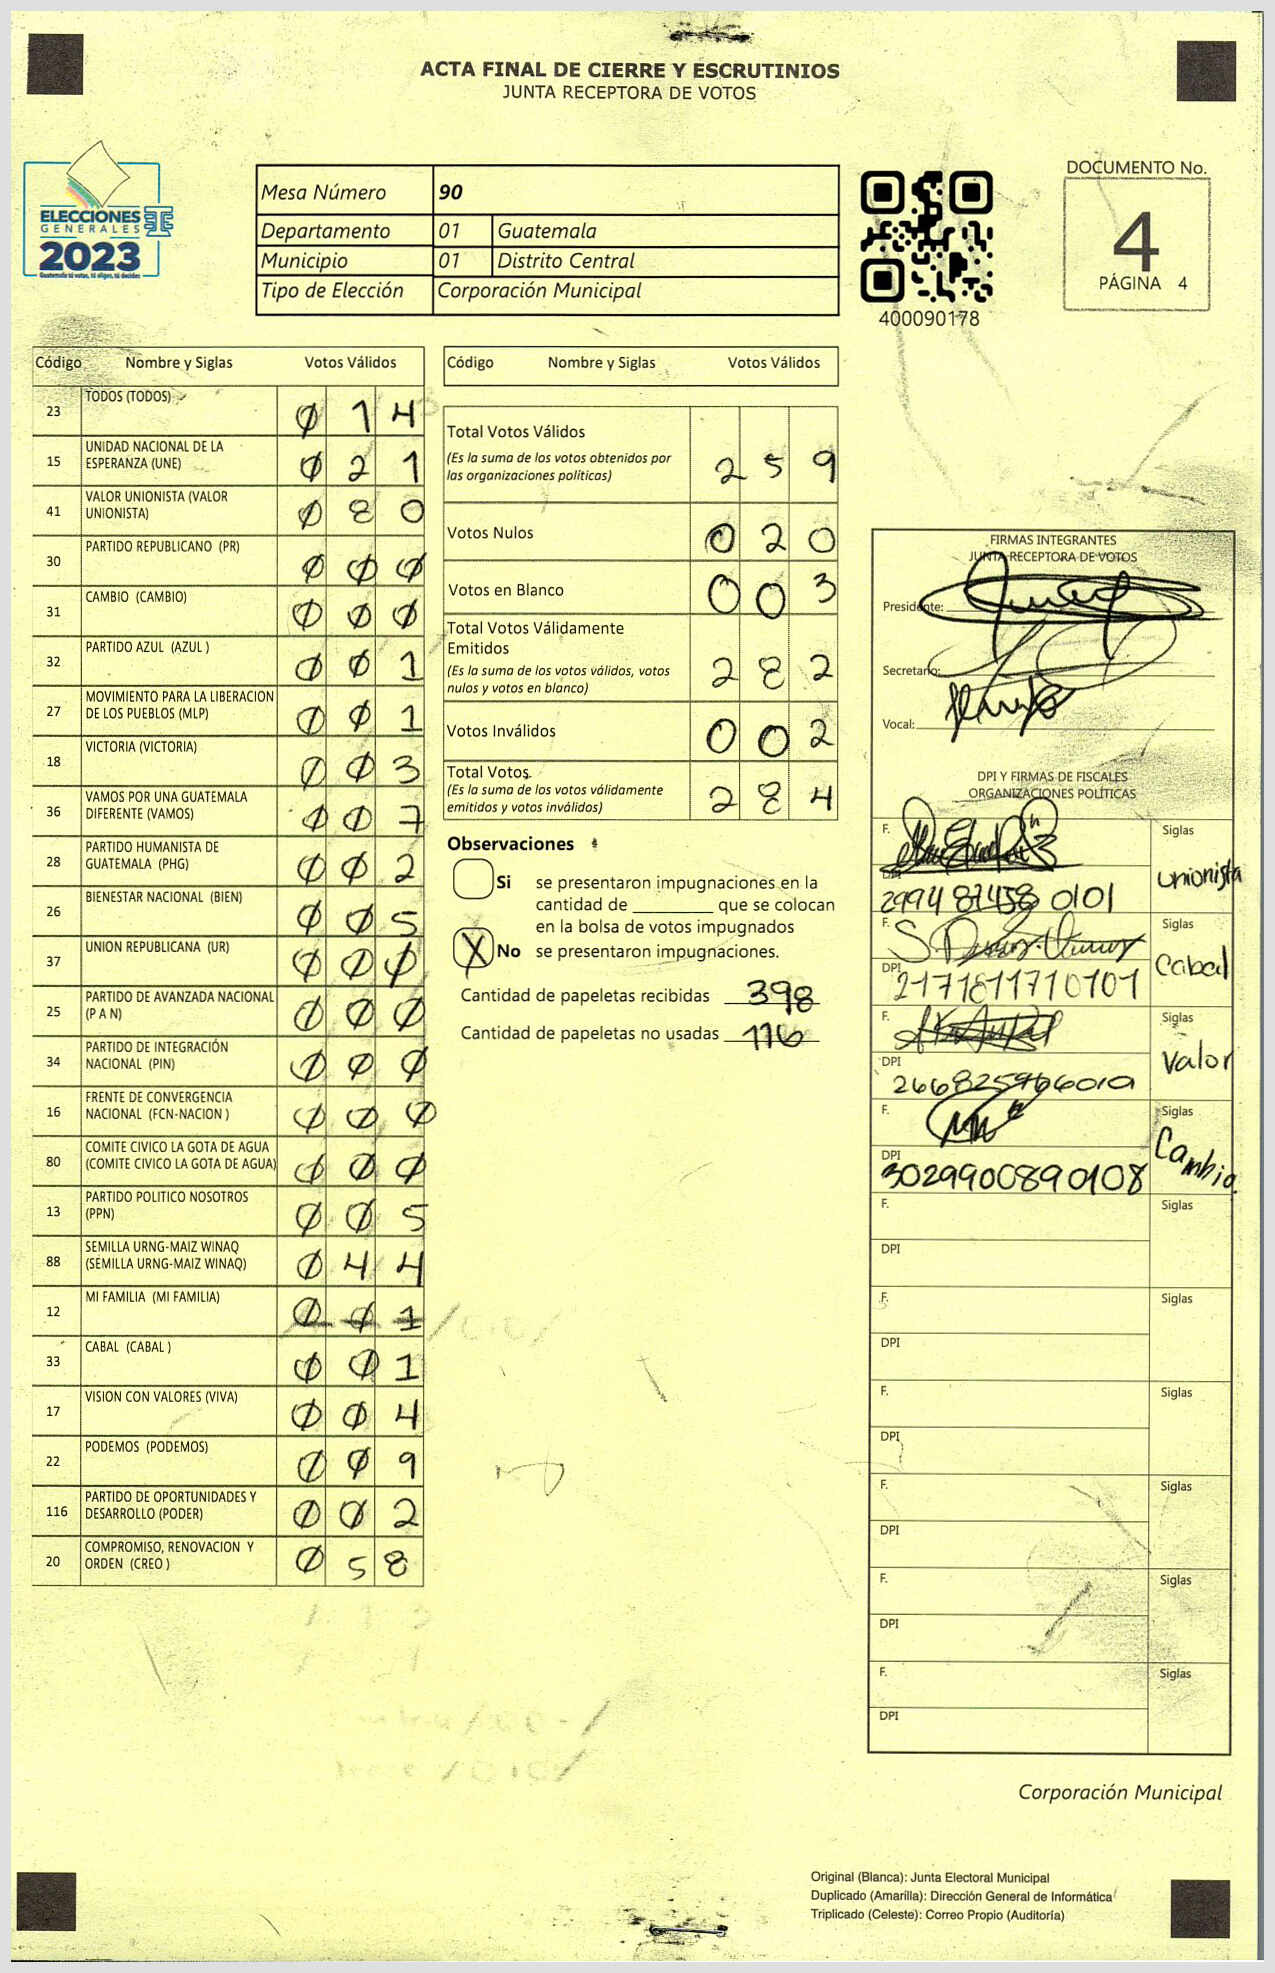 ACTA FINAL DE CIERRE Y ESCRUTINIOS
JUNTA RECEPTORA DE VOTOS
ELECCIONES
GENERALES
2023
Guatemala tú votas, tú eliges, tú decides
Mesa Número 90
Departamento 01 Guatemala
Municipio 01 Distrito Central
Tipo de Elección Corporación Municipal
400090178
DOCUMENTO No.
4
PÁGINA 4
Código Nombre y Siglas Votos Válidos
23 TODOS (TODOS) 0 1 4
15 UNIDAD NACIONAL DE LA ESPERANZA (UNE) 0 2 1
41 VALOR UNIONISTA (VALOR UNIONISTA) 0 8 0
30 PARTIDO REPUBLICANO (PR) 0 0 0
31 CAMBIO (CAMBIO) 0 0 0
32 PARTIDO AZUL (AZUL ) 0 0 1
27 MOVIMIENTO PARA LA LIBERACION DE LOS PUEBLOS (MLP) 0 0 1
18 VICTORIA (VICTORIA) 0 0 3
36 VAMOS POR UNA GUATEMALA DIFERENTE (VAMOS) 0 0 7
28 PARTIDO HUMANISTA DE GUATEMALA (PHG) 0 0 2
26 BIENESTAR NACIONAL (BIEN) 0 0 5
37 UNION REPUBLICANA (UR) 0 0 0
25 PARTIDO DE AVANZADA NACIONAL (P A N) 0 0 0
34 PARTIDO DE INTEGRACIÓN NACIONAL (PIN) 0 0 0
16 FRENTE DE CONVERGENCIA NACIONAL (FCN-NACION ) 0 0 0
80 COMITE CIVICO LA GOTA DE AGUA (COMITE CIVICO LA GOTA DE AGUA) 0 0 0
13 PARTIDO POLITICO NOSOTROS (PPN) 0 0 5
88 SEMILLA URNG-MAIZ WINAQ (SEMILLA URNG-MAIZ WINAQ) 0 4 4
12 MI FAMILIA (MI FAMILIA) 0 0 1
33 CABAL (CABAL ) 0 0 1
17 VISION CON VALORES (VIVA) 0 0 4
22 PODEMOS (PODEMOS) 0 0 9
116 PARTIDO DE OPORTUNIDADES Y DESARROLLO (PODER) 0 0 2
20 COMPROMISO, RENOVACION Y ORDEN (CREO ) 0 5 8
Código Nombre y Siglas Votos Válidos
Total Votos Válidos
(Es la suma de los votos obtenidos por
las organizaciones políticas) 2 5 9
Votos Nulos 0 2 0
Votos en Blanco 0 0 3
Total Votos Válidamente
Emitidos
(Es la suma de los votos válidos, votos
nulos y votos en blanco) 2 8 2
Votos Inválidos 0 0 2
Total Votos
(Es la suma de los votos válidamente
emitidos y votos inválidos) 2 8 4
Observaciones
Si se presentaron impugnaciones en la
cantidad de ________ que se colocan
en la bolsa de votos impugnados
X No se presentaron impugnaciones.
Cantidad de papeletas recibidas 398
Cantidad de papeletas no usadas 116
FIRMAS INTEGRANTES
JUNTA RECEPTORA DE VOTOS
Presidente:
Secretario:
Vocal:
DPI Y FIRMAS DE FISCALES
ORGANIZACIONES POLÍTICAS
F. Siglas
unionista
DPI
2994 87458 0101
F. Siglas
Cabal
DPI
2171811710101
F. Siglas
Valor
DPI
F. Siglas
Cambio
DPI
3029900890108
F. Siglas
DPI
F. Siglas
DPI
F. Siglas
DPI
F. Siglas
DPI
F. Siglas
DPI
F. Siglas
DPI
Corporación Municipal
Original (Blanca): Junta Electoral Municipal
Duplicado (Amarilla): Dirección General de Informática
Triplicado (Celeste): Correo Propio (Auditoría)